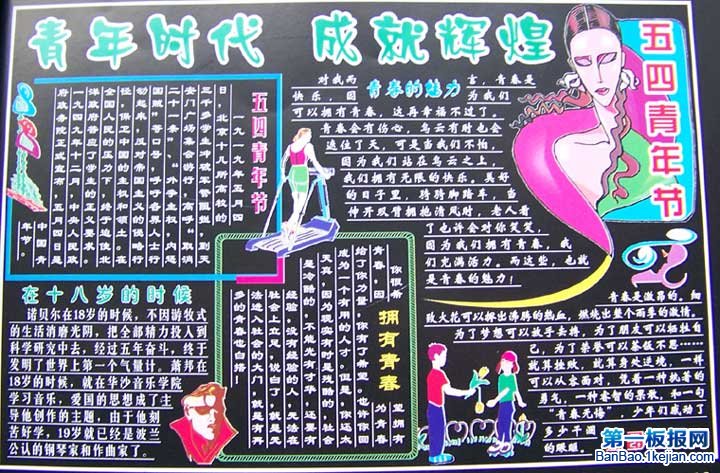 青年时代 成就辉煌
五四青年节
一九一九年五月四
日，北京十几所高校的
三千多学生冲军警阻拦，到天
安门广场集会游行，高呼“取消
二十一条”，“外争主权，内惩
国贼”等口号，呼吁各界人士行
动起来，反对帝国主义的侵略行
径，保卫中国的主权和领土。在
全国人民的压力下，终于迫使北
洋政府答应了学生的正义要求。
一九四九年十二月，中央人民政
府政务院正式宣布，五月四日是
中国青
年节。
青春的魅力
对我而言，青春是
快乐，因为我们
可以拥有青春，这再幸福不过了。
青春会有伤心，乌云有时也会
遮住了天，可是当我们不怕，
因为我们站在乌云之上，
我们拥有无限的快乐。美好
的日子里，骑骑脚踏车，当
伸开双臂拥抱清风时，老人看
了也许会对你笑笑，
因为我们拥有青春，我
们充满活力。而这些，也就
是青春的魅力！
五四青年节
在十八岁的时候
诺贝尔在18岁的时候，不因游牧式
的生活消磨光阴，把全部精力投入到
科学研究中去，经过五年奋斗，终于
发明了世界上第一个气量计。萧邦在
18岁的时候，就在华沙音乐学院
学习音乐，爱国的思想成了主
导他创作的主题，由于他刻
苦好学，19岁就已经是波兰
公认的钢琴家和作曲家了。
拥有青春
你很希望拥有
青春，因为青春
给了你力量，你有了希望，也许你因
成为一个有用的人才。但是，你还太
天真，因为现实有时是残酷的，社会
是冷酷的，不能光有才华，还要有
经验，没有经验的人，无法在
社会上立足，说白了，就是无
法进入社会的大门，就是有再
多的青春也白搭
青春是激昂的，细
致大花可以挤出沸腾的热血，燃烧出整个雨季的激情。
为了梦想可以放手去搏，为了朋友可以牺牲自
己，为了荣誉可以茶饭不思……
就算挫败，就算身处逆境，一样
可以从零面对，凭着一种执着的
勇气，一种睿智的果敢，和一句
“青春无悔”，少年们感动了
多少干涸
的眼眼。
第一板报网
BanBao.1kejian.com